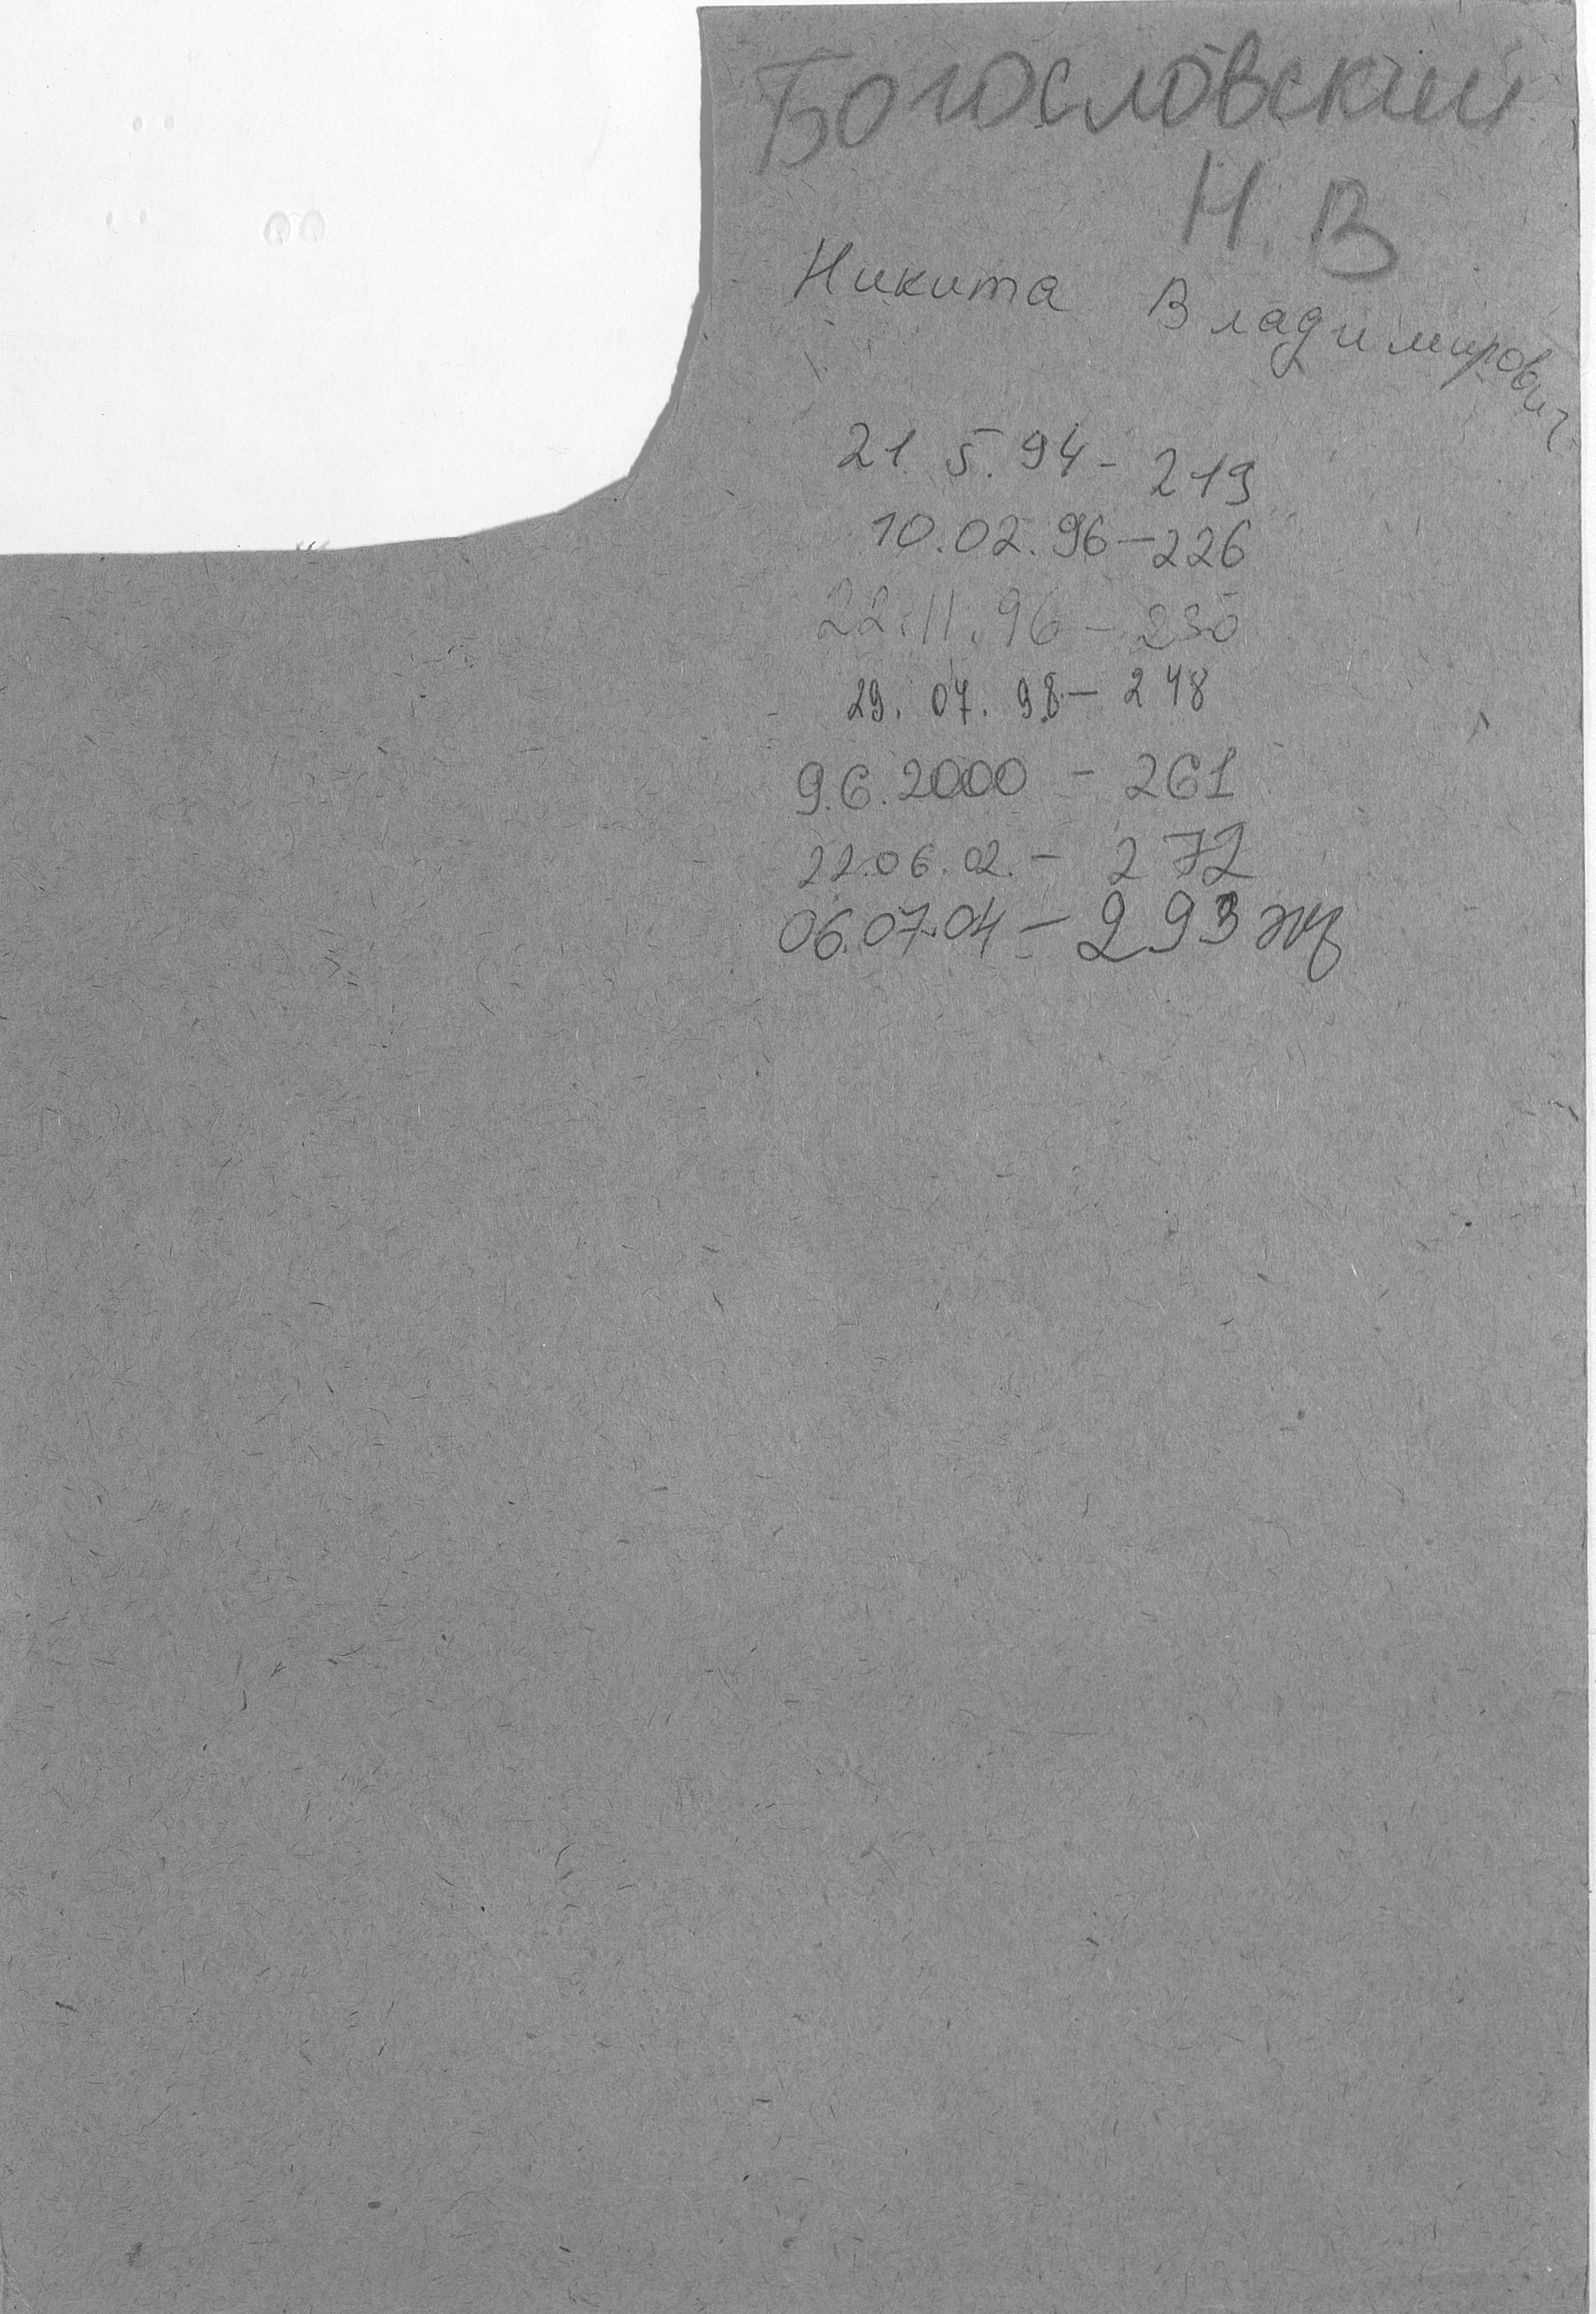 Богословский
Н. В
Никита Владимирович
21 5. 94 - 219
10.02.96 - 226
22.11.96 - 230
29. 07. 98 - 248
9.6.2000 - 261
22.06.02. - 272
06.07.04 - 293